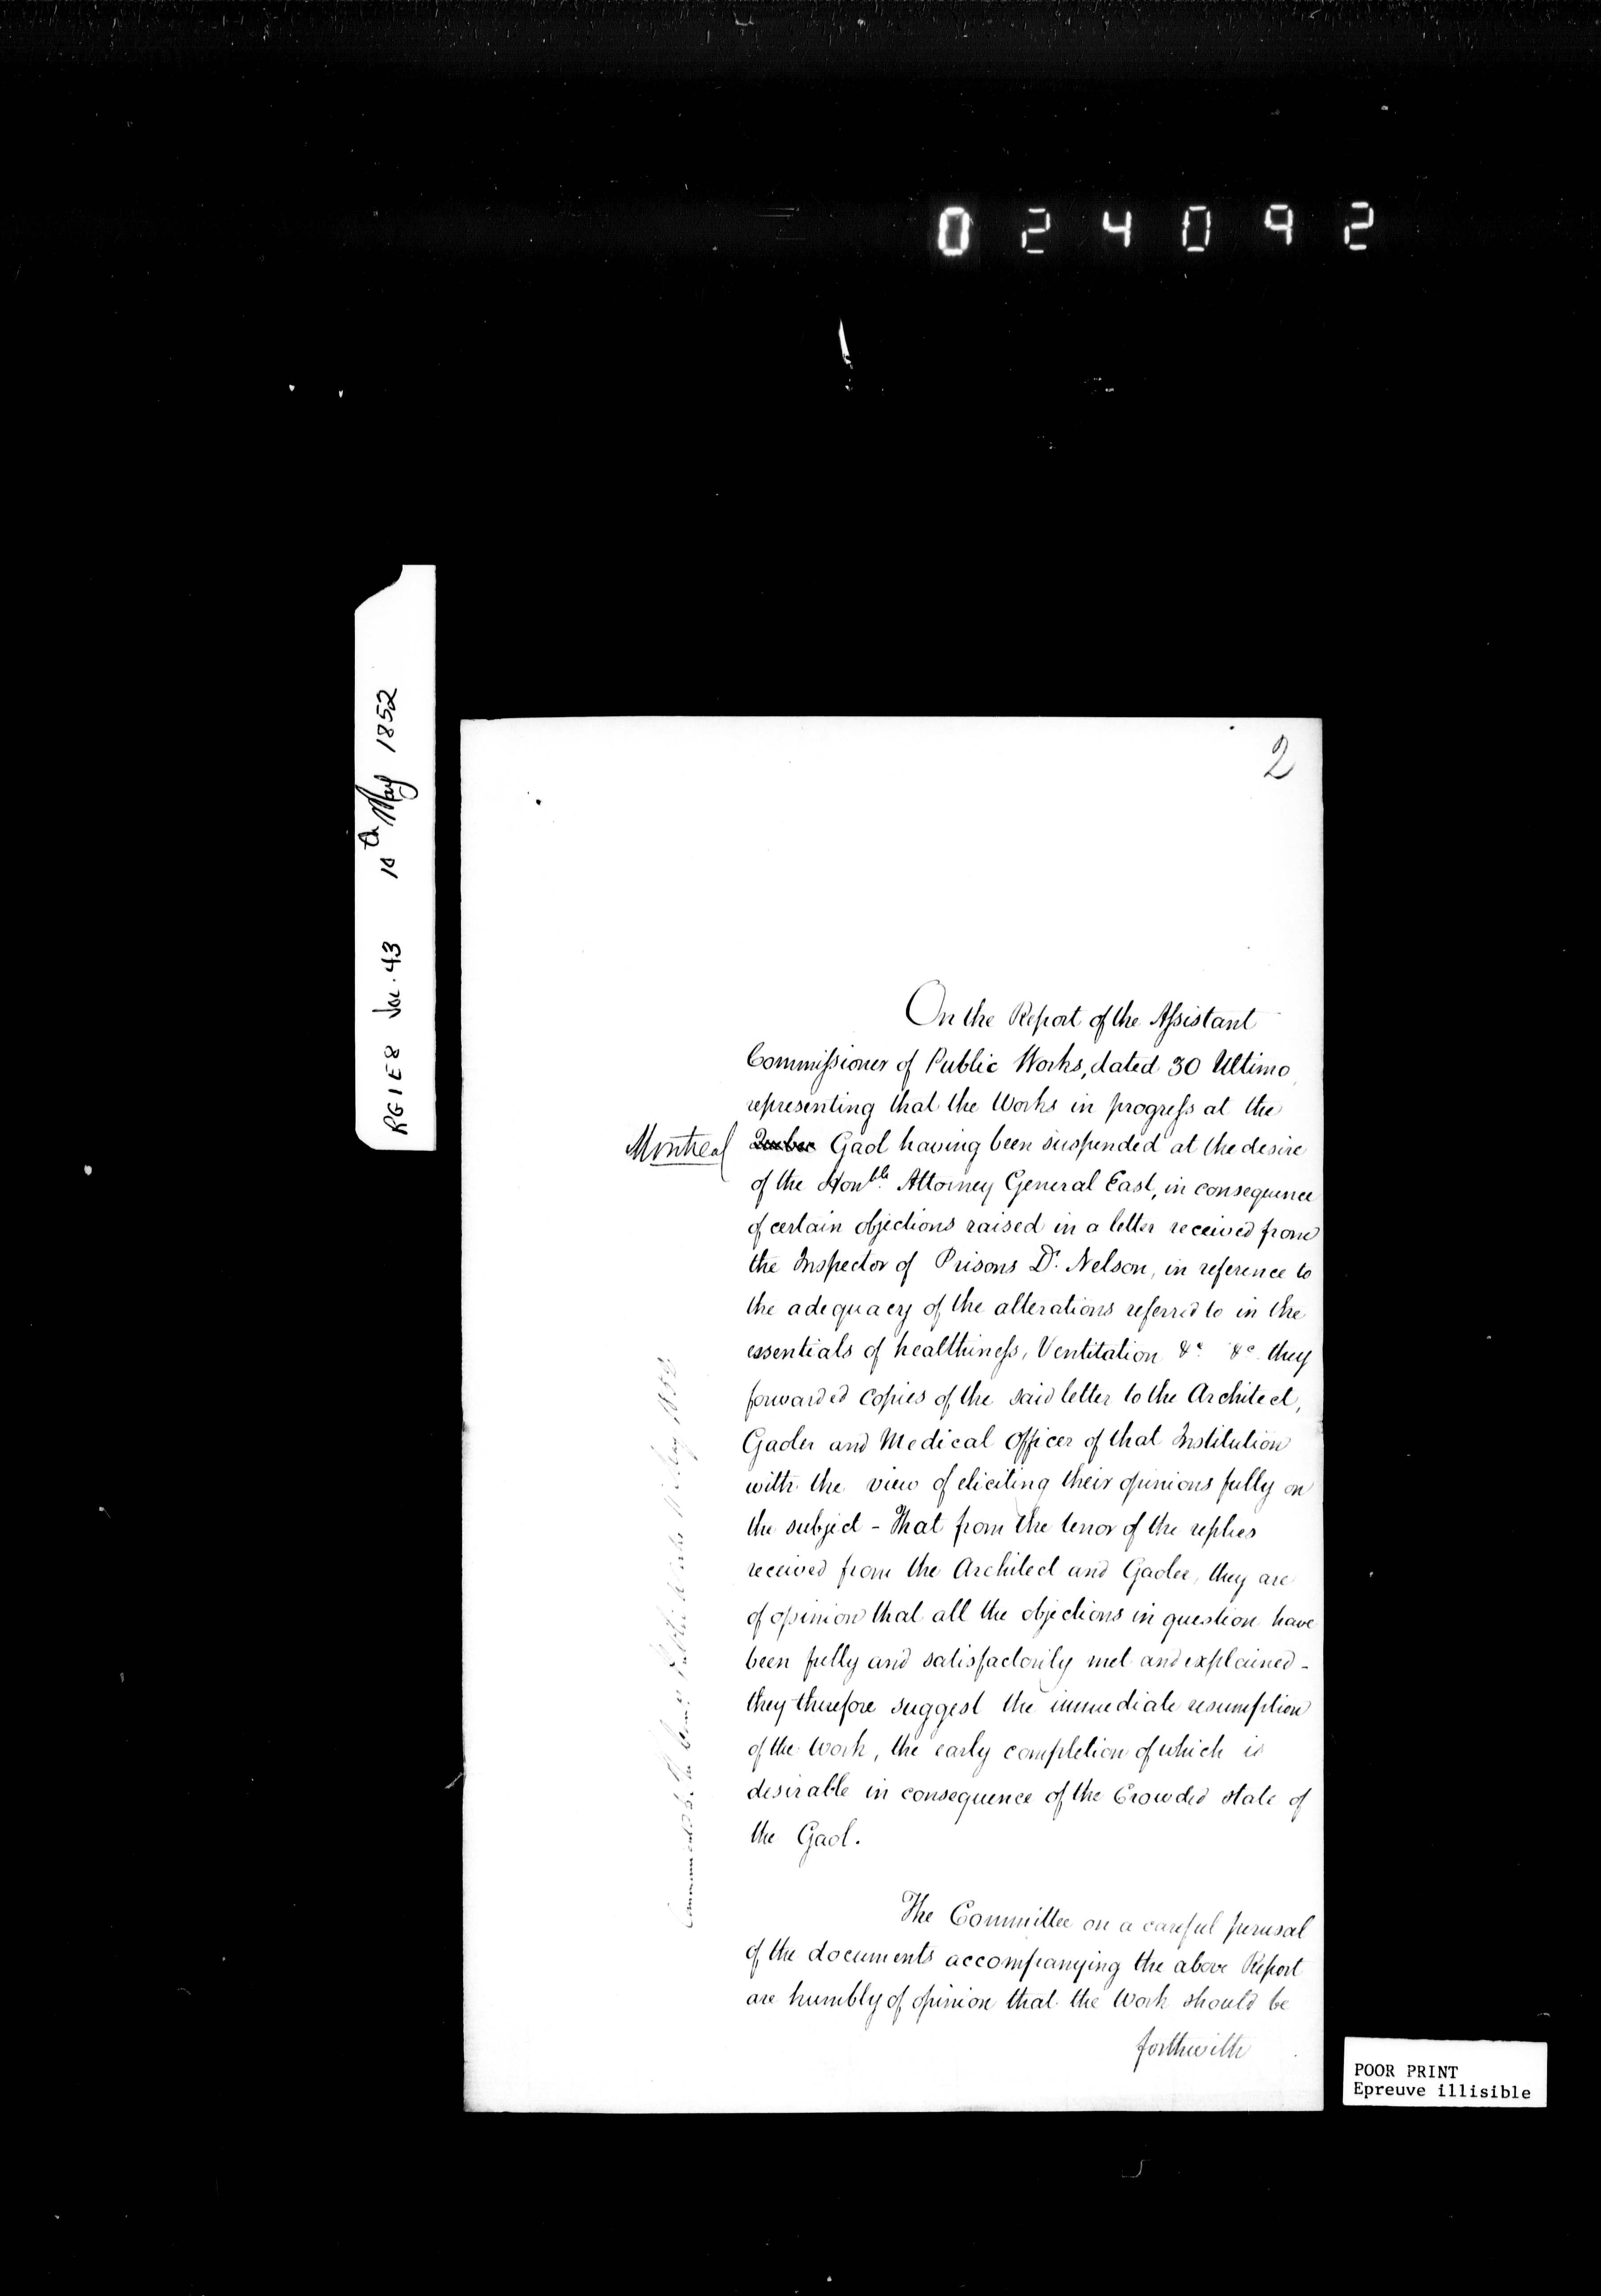 024092
RG 1 E 8 Vol. 43 10th May 1852
2
On the Report of the Assistant
Commissioner of Public Works, dated 30 Ultimo
representing that the Works in progress at the
Montreal Quebec Gaol having been suspended at the desire
of the Honble. Attorney General East, in consequence
of certain objections raised in a letter received from
the Inspector of Prisons Dr. Nelson, in reference to
the adequacy of the alterations referred to in the
essentials of healthiness, Ventilation &c. &c. they
forwarded copies of the said letter to the Architect,
Gaoler and Medical Officer of that Institution
with the view of eliciting their opinions fully on
the subject - That from the tenor of the replies
received from the Architect and Gaoler, they are
of opinion that all the objections in question have
been fully and satisfactorily met and explained -
they therefore suggest the immediate resumption
of the work, the early completion of which is
desirable in consequence of the Crowded state of
the Gaol.
The Committee on a careful perusal
of the documents accompanying the above Report
are humbly of opinion that the Work should be
forthwith
May 1852
POOR PRINT
Epreuve illisible